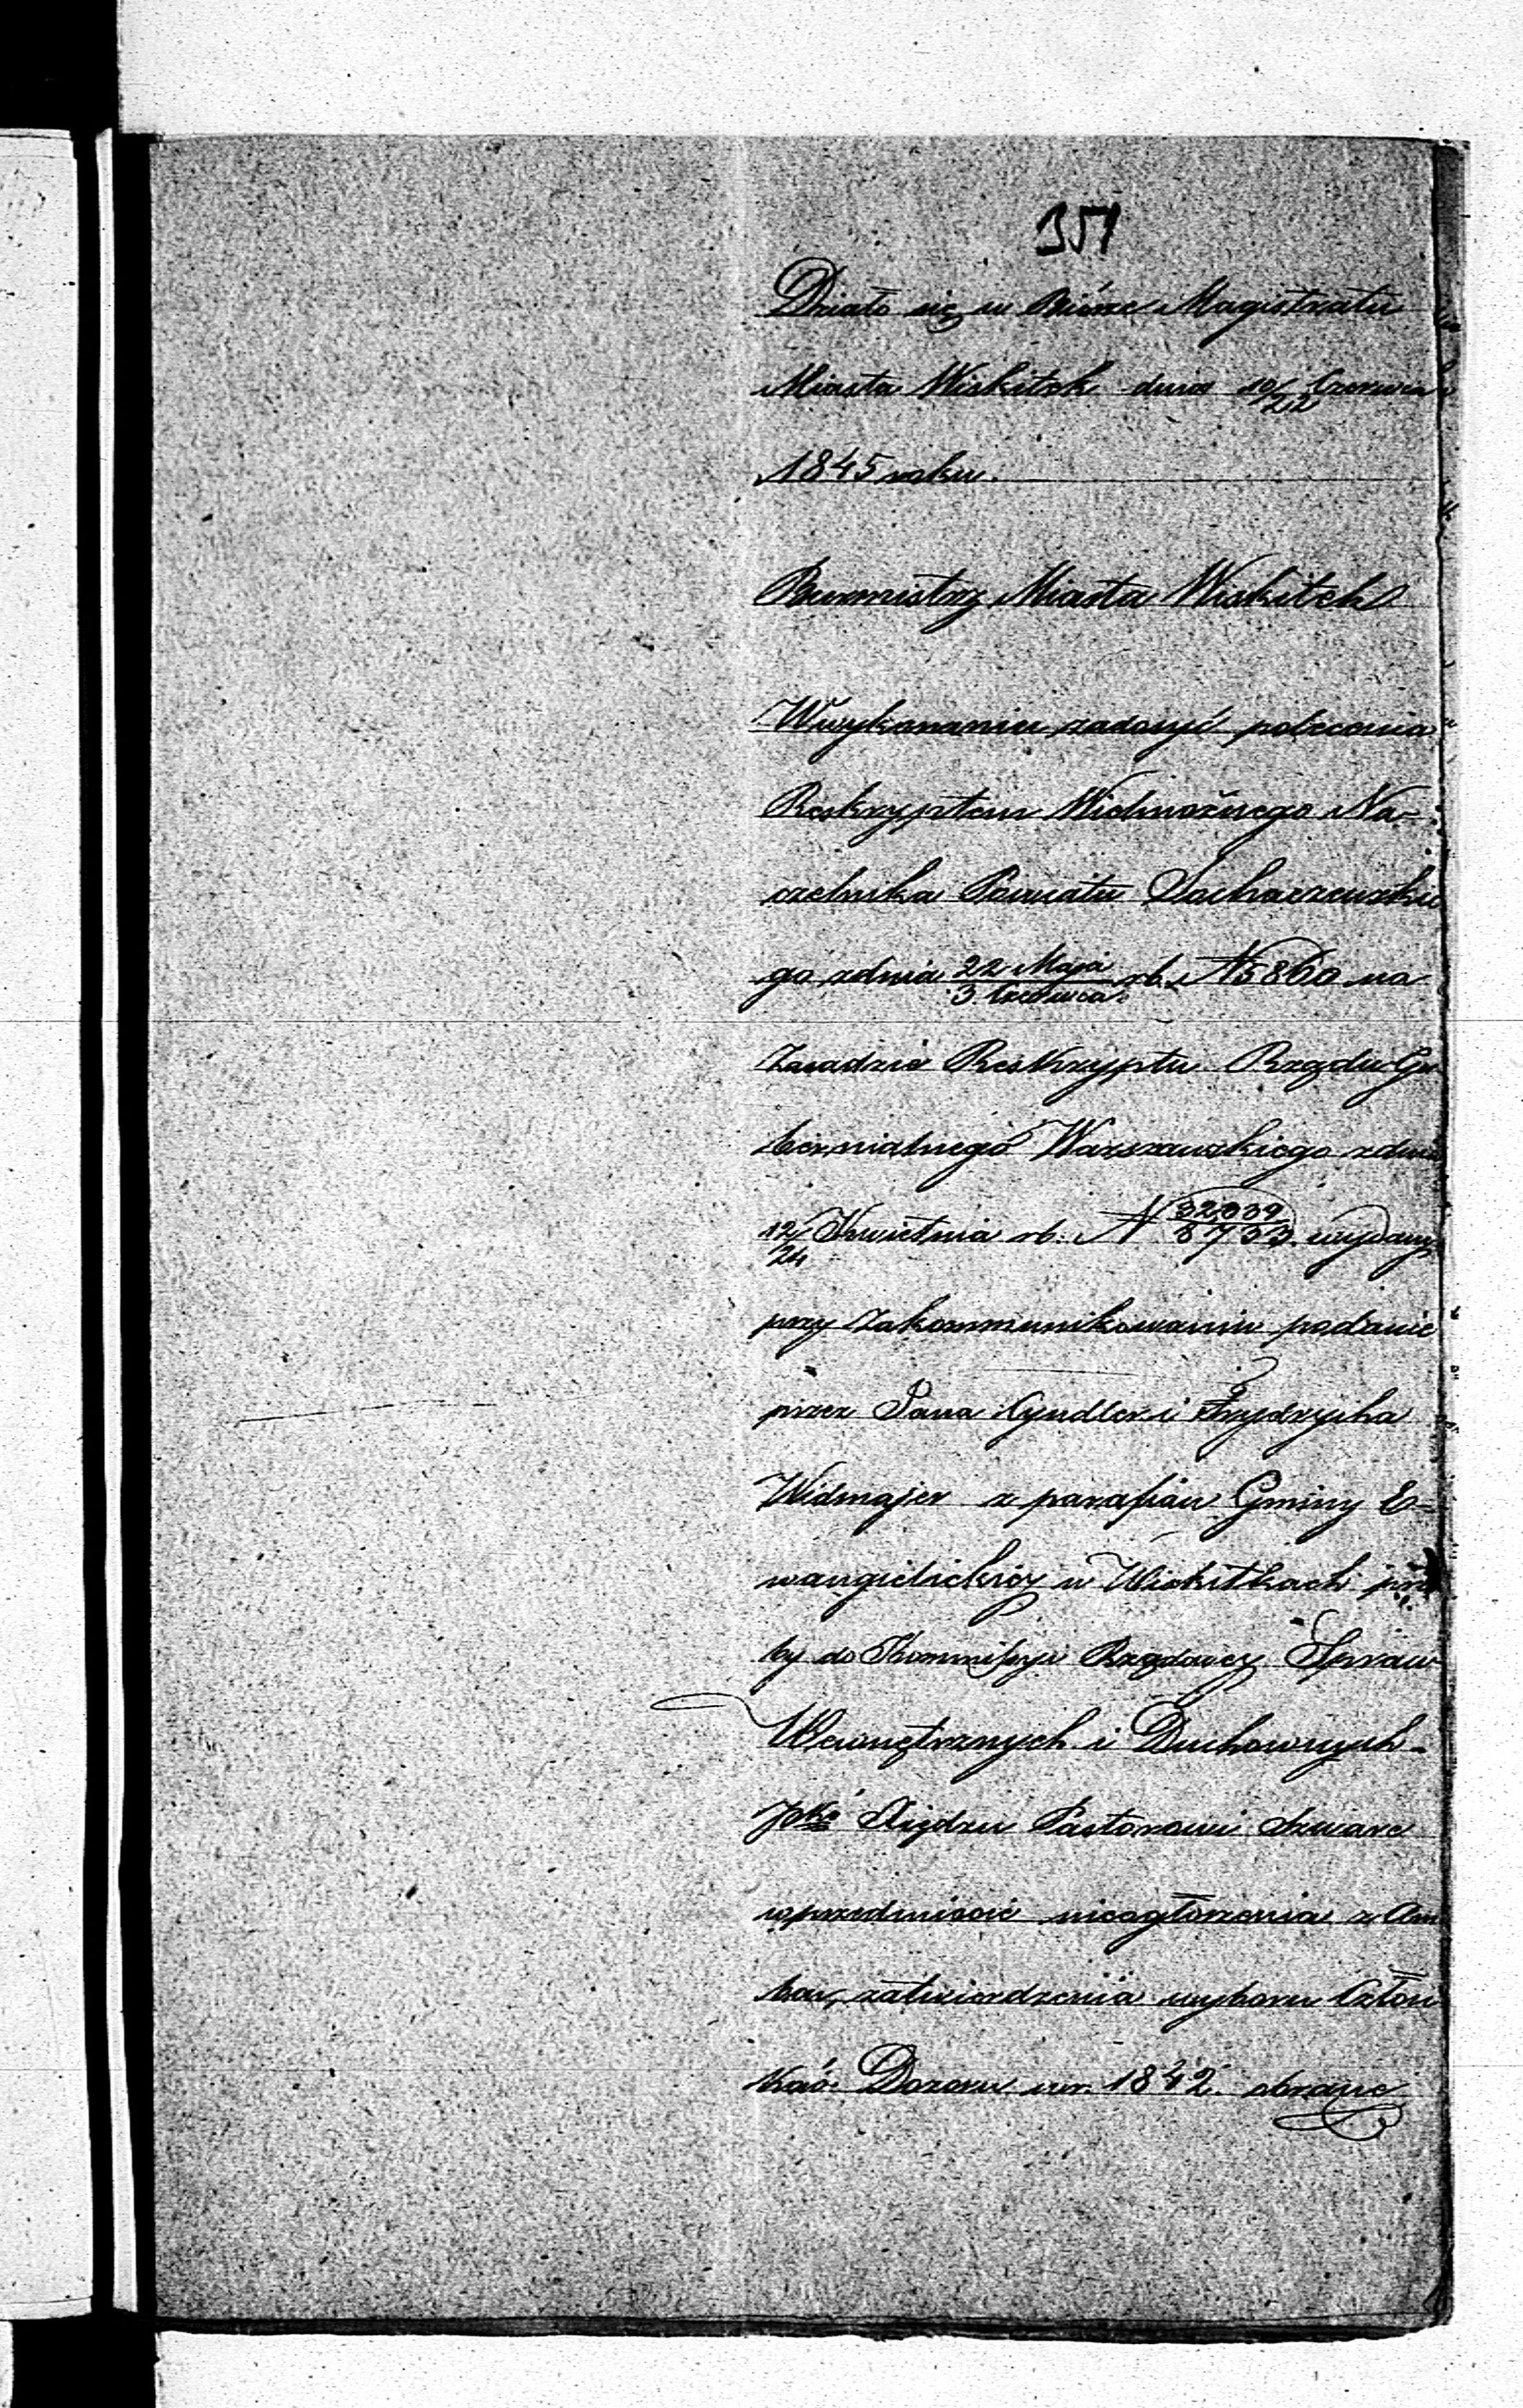 351
Działo się w Biórze Magistratu
Miasta Wiskitek dnia 10/22 Czerwca
1845 roku.
Burmistrz Miasta Wiskitek
W wykonaniu zadosyć polecenia
Reskryptem Wielmożnego Na-
czelnika Powiatu Sochaczewskie
go z dnia 22 Maja/3 Czerwca rb. N 5860 na
Zasadzie Reskryptu Rządu Gu
bernialnego Warszawskiego z dnia
12/24 Kwietnia rb: N wydany
przy Zakommunikowaniu podanie
przez Pana Cyndler i Frydrycha
Widmajer z parafian Gminy E-
wangielickiej w Wiskitkach proś
by do Kommissyi Rządowej Spraw
Wewnętrznych i Duchownych
Xiędzu Pastorowi Szwarc
w przedmiocie nieogłoszenia z Am
bon, zatwierdzenia wyboru Człon
ków Dozoru w r. 1842 obrane